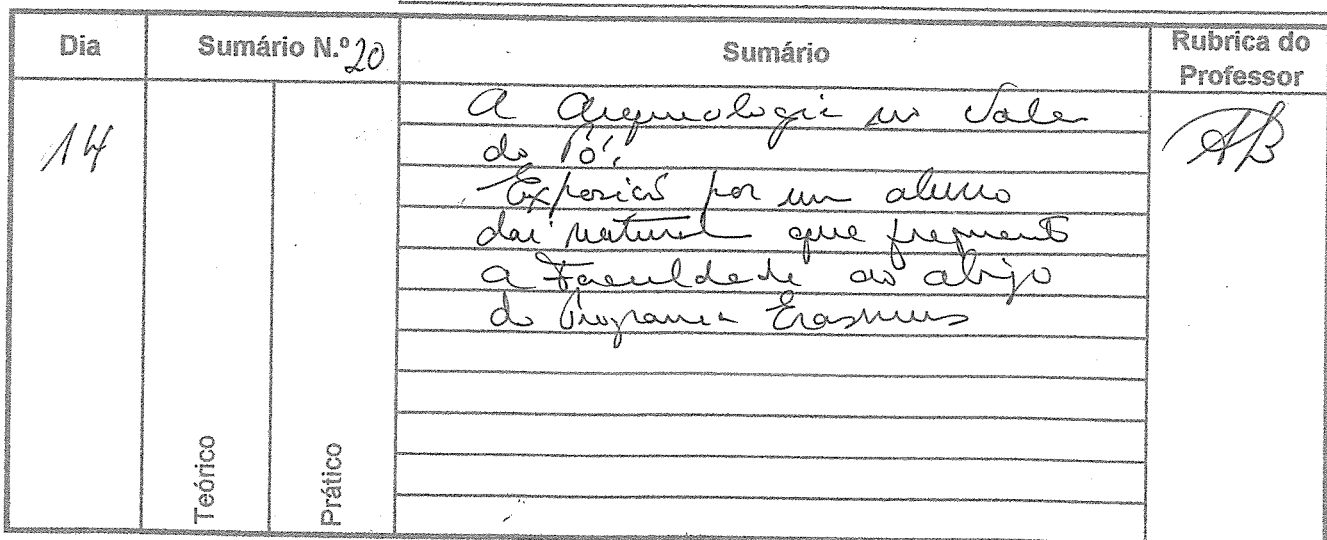 Dia
Sumário N.º 20
Sumário
Rubrica do
Professor
14
A Arqueologia no Vale
do Pó.
Exposição por um aluno
daí natural que frequenta
a Faculdade ao abrigo
do Programa Erasmus
AB
Teórico
Prático